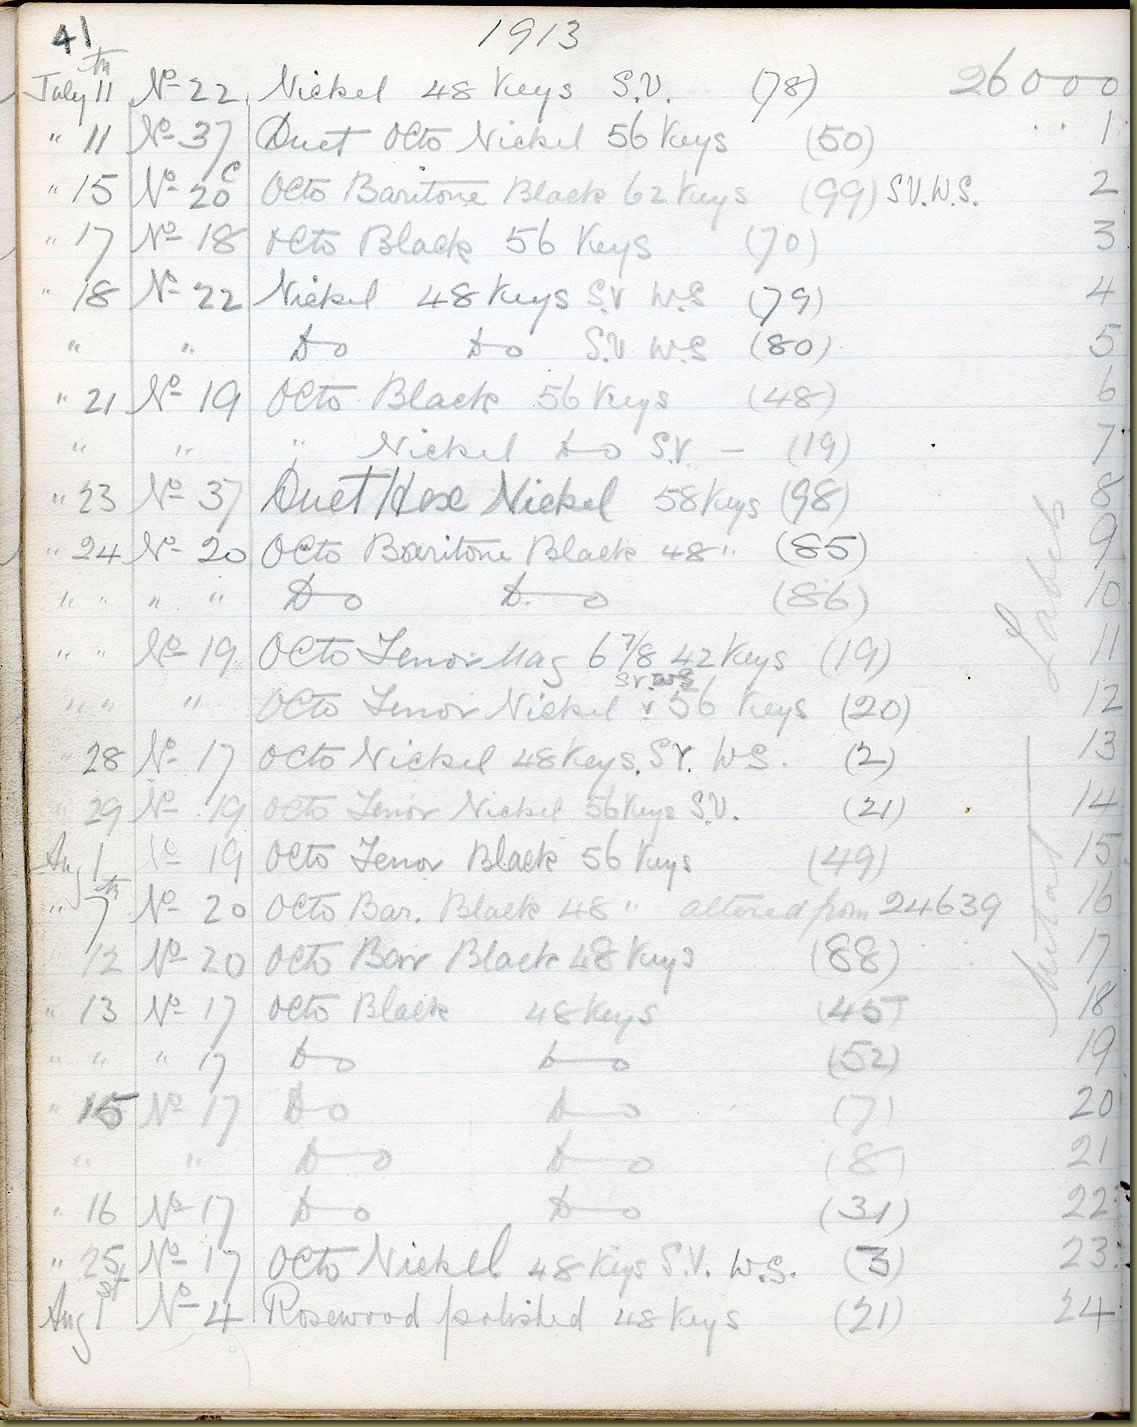 41 1913
July 11th No 22 Nickel 48 Keys S.V. (78) 26000
" 11 No 37 Duet Octo Nickel 56 Keys (50) 1
" 15 No 20c Octo Baritone Black 62 Keys (99) S.V. W.S. 2
" 17 No 18 Octo Black 56 Keys (70) 3
" 18 No 22 Nickel 48 Keys S.V W.S (79) 4
" " Do Do S.V W.S (80) 5
" 21 No 19 Octo Black 56 Keys (48) 6
" " " Nickel Do S.V. — (19) 7
" 23 No 37 Duet Hex Nickel 58 Keys (98) 8
" 24 No 20 Octo Baritone Black 48 " (85) 9
" " " " Do Do (86) 10
" " No 19 Octo Tenor Mag 6 7/8 42 Keys (19) 11
S.V. W.S
" " " Octo Tenor Nickel 56 Keys (20) 12
" 28 No 17 Octo Nickel 48 Keys. S.V. W.S. (2) 13
" 29 No 19 Octo Tenor Nickel 56 Keys S.V. (21) 14
Aug 1 No 19 Octo Tenor Black 56 Keys (49) 15
" 7th No 20 Octo Bar. Black 48 " altered from 24639 16
" 12 No 20 Octo Barr Black 48 Keys (88) 17
" 13 No 17 Octo Black 48 Keys (45) 18
" " " 17 Do Do (52) 19
" 15 No 17 Do Do (7) 20
" " Do Do (8) 21
" 16 No 17 Do Do (31) 22
" 25 No 17 Octo Nickel 48 Keys S.V. W.S. (3) 23
Aug 1st No 4 Rosewood polished 48 Keys (21) 24
Labels